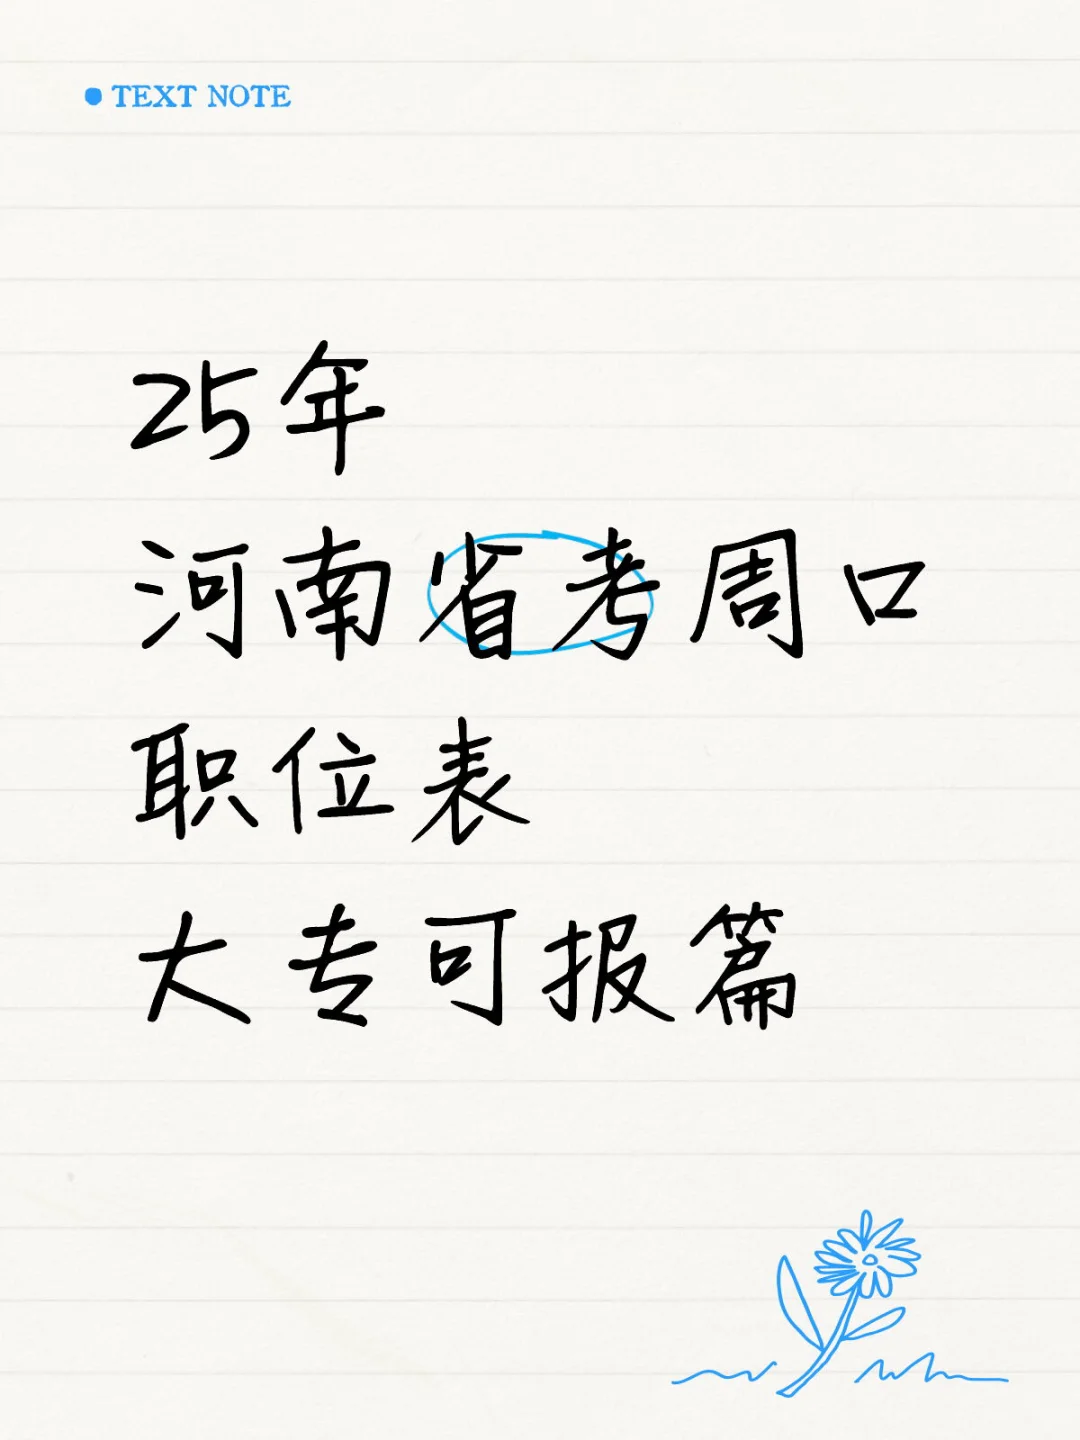 TEXT NOTE
25年
河南省考周口
职位表
大专可报篇